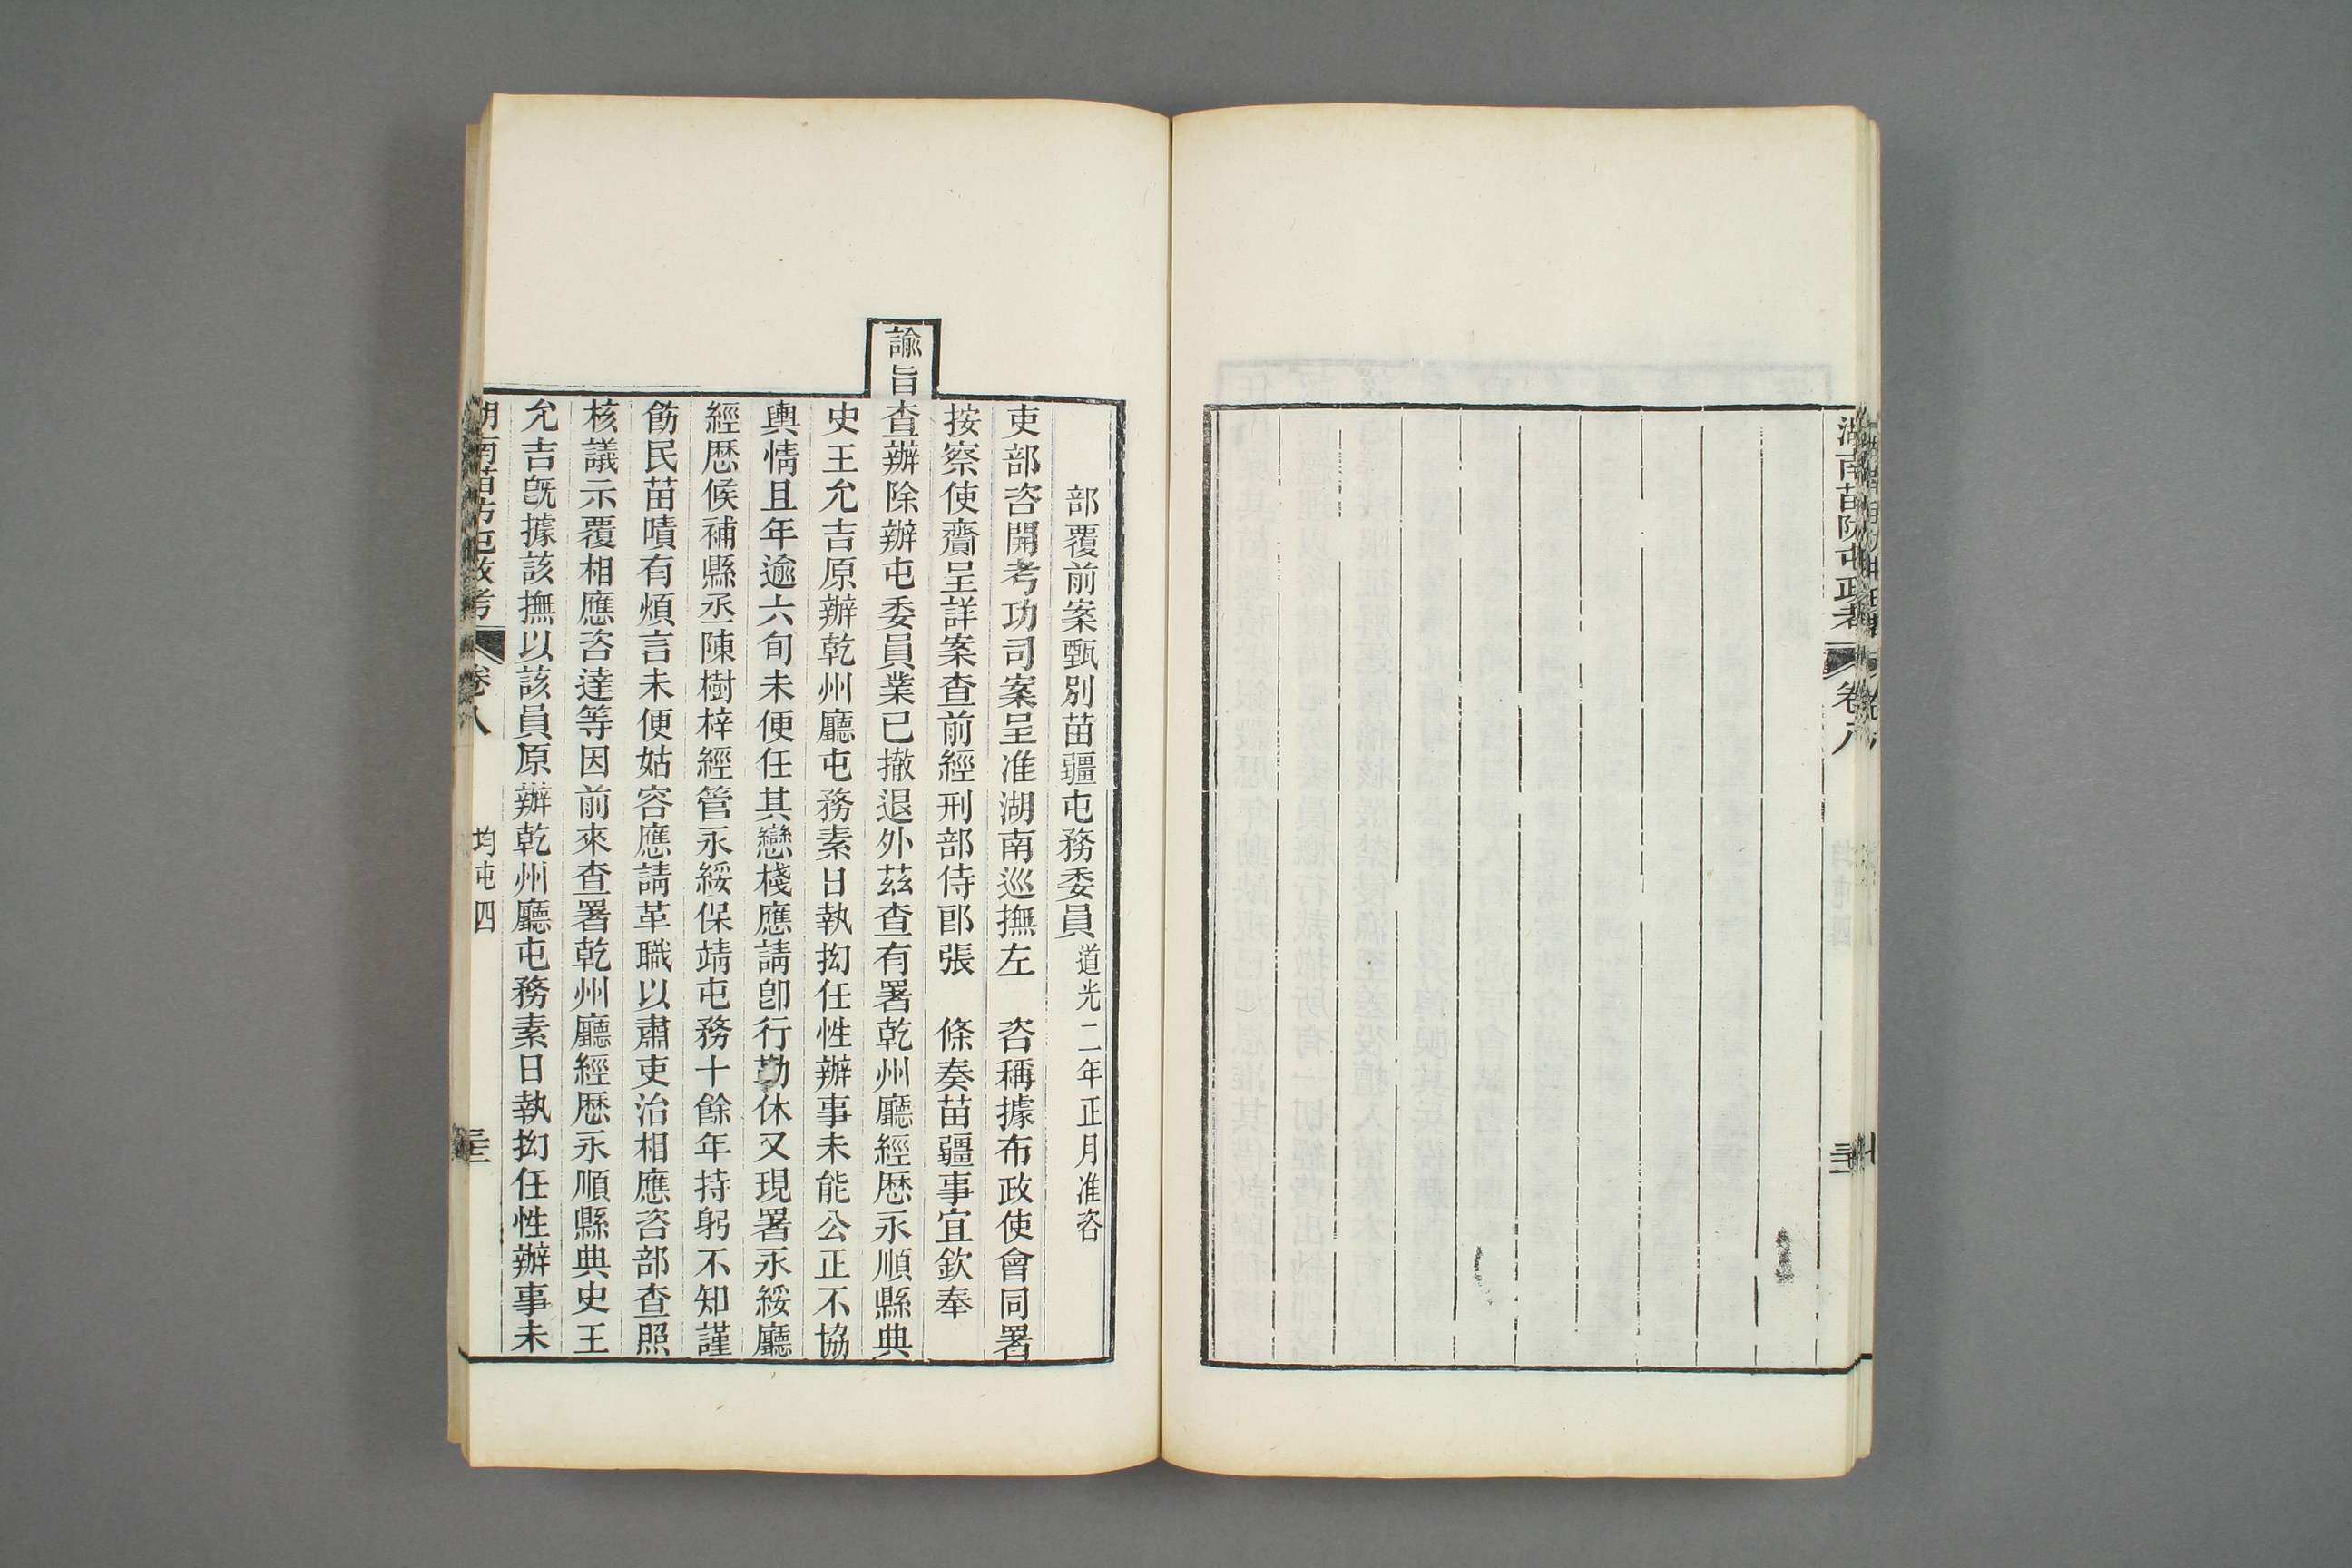 湖南苗防屯政考 卷八
部覆前案甄別苗疆屯務委員道光二年正月准咨
吏部咨開考功司案呈准湖南巡撫左　咨稱據布政使會同署
按察使齎呈詳案查前經刑部侍郎張　條奏苗疆事宜欽奉
諭旨查辦除辦屯委員業已撤退外茲查有署乾州廳經歷永順縣典
史王允吉原辦乾州廳屯務素日執拗任性辦事未能公正不協
輿情且年逾六旬未便任其戀棧應請卽行勒休又現署永綏廳
經歷候補縣丞陳樹梓經管永綏保靖屯務十餘年持躬不知謹
飭民苗嘖有煩言未便姑容應請革職以肅吏治相應咨部查照
核議示覆相應咨達等因前來查署乾州廳經歷永順縣典史王
允吉旣據該撫以該員原辦乾州廳屯務素日執拗任性辦事未
湖南苗防屯政考 卷八 均屯四